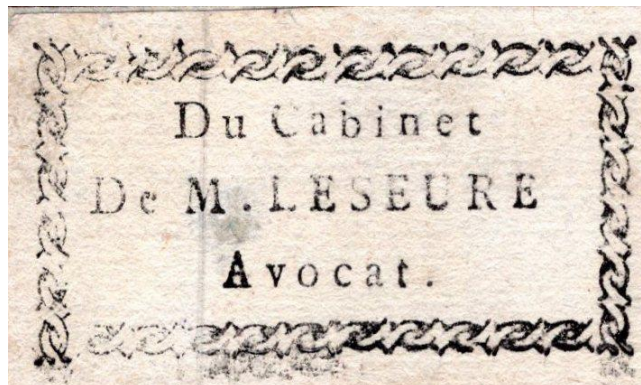 Du Cabinet
De M. LESEURE
Avocat.